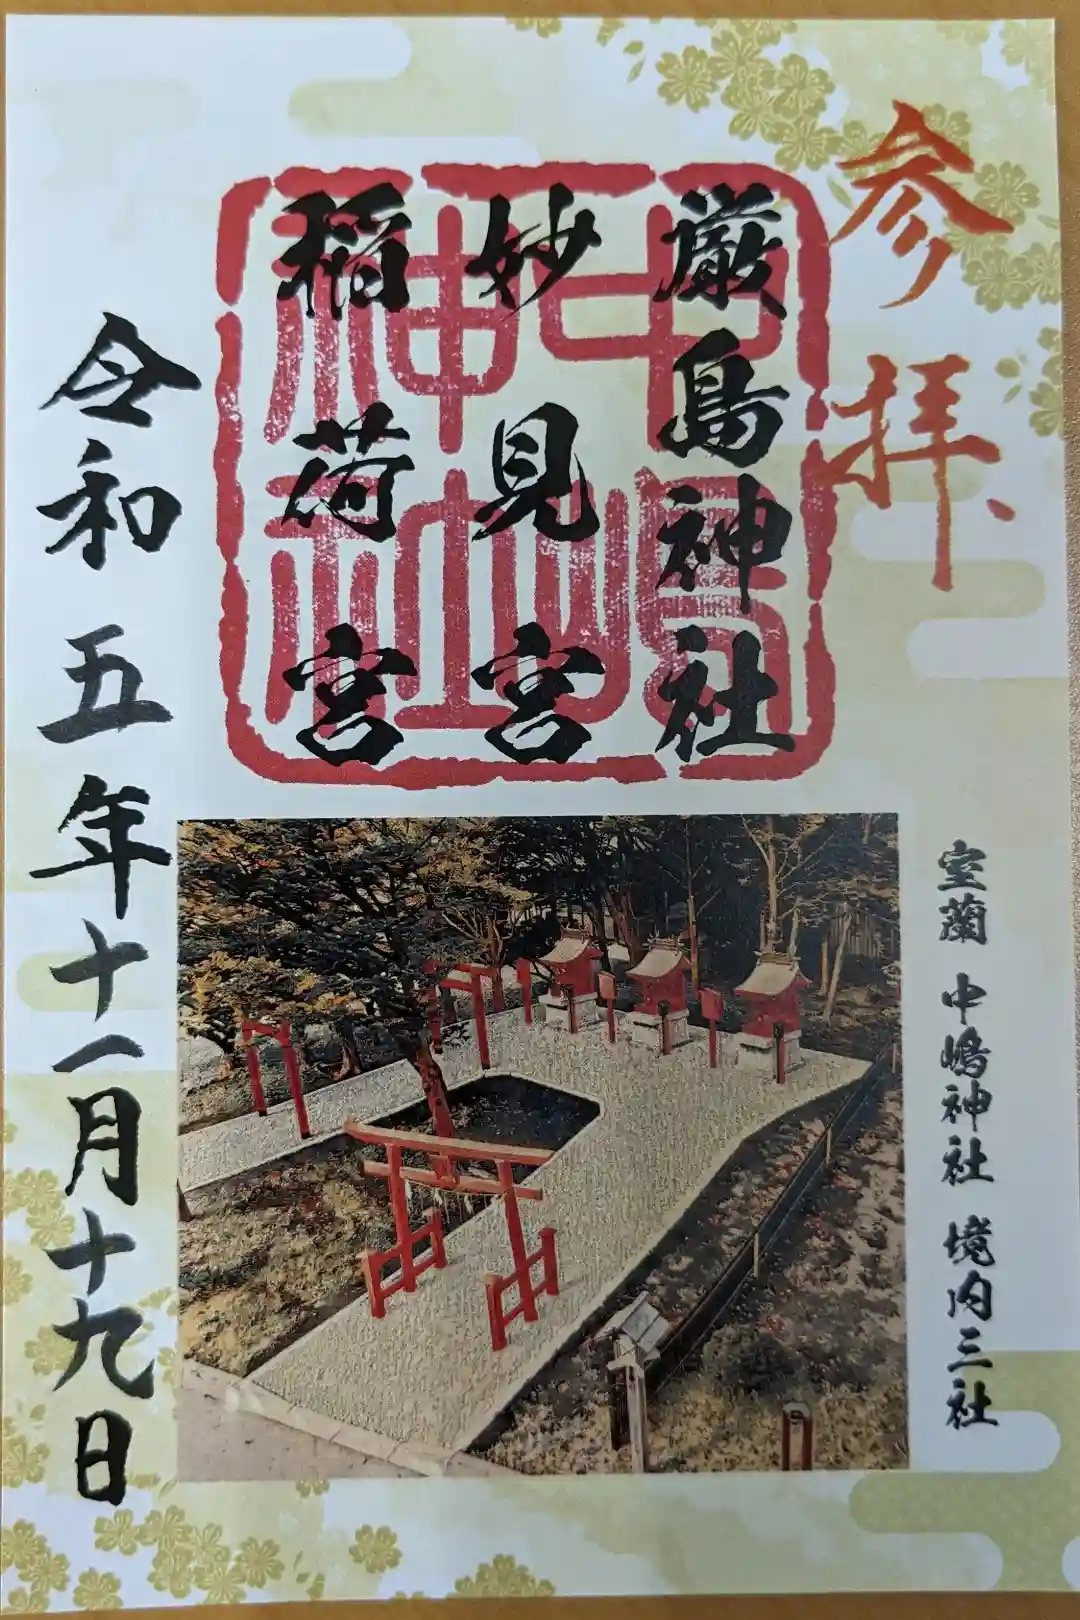 参拝
厳島神社
妙見宮
稲荷宮
中嶋神社
令和五年十一月十九日
室蘭 中嶋神社 境内三社